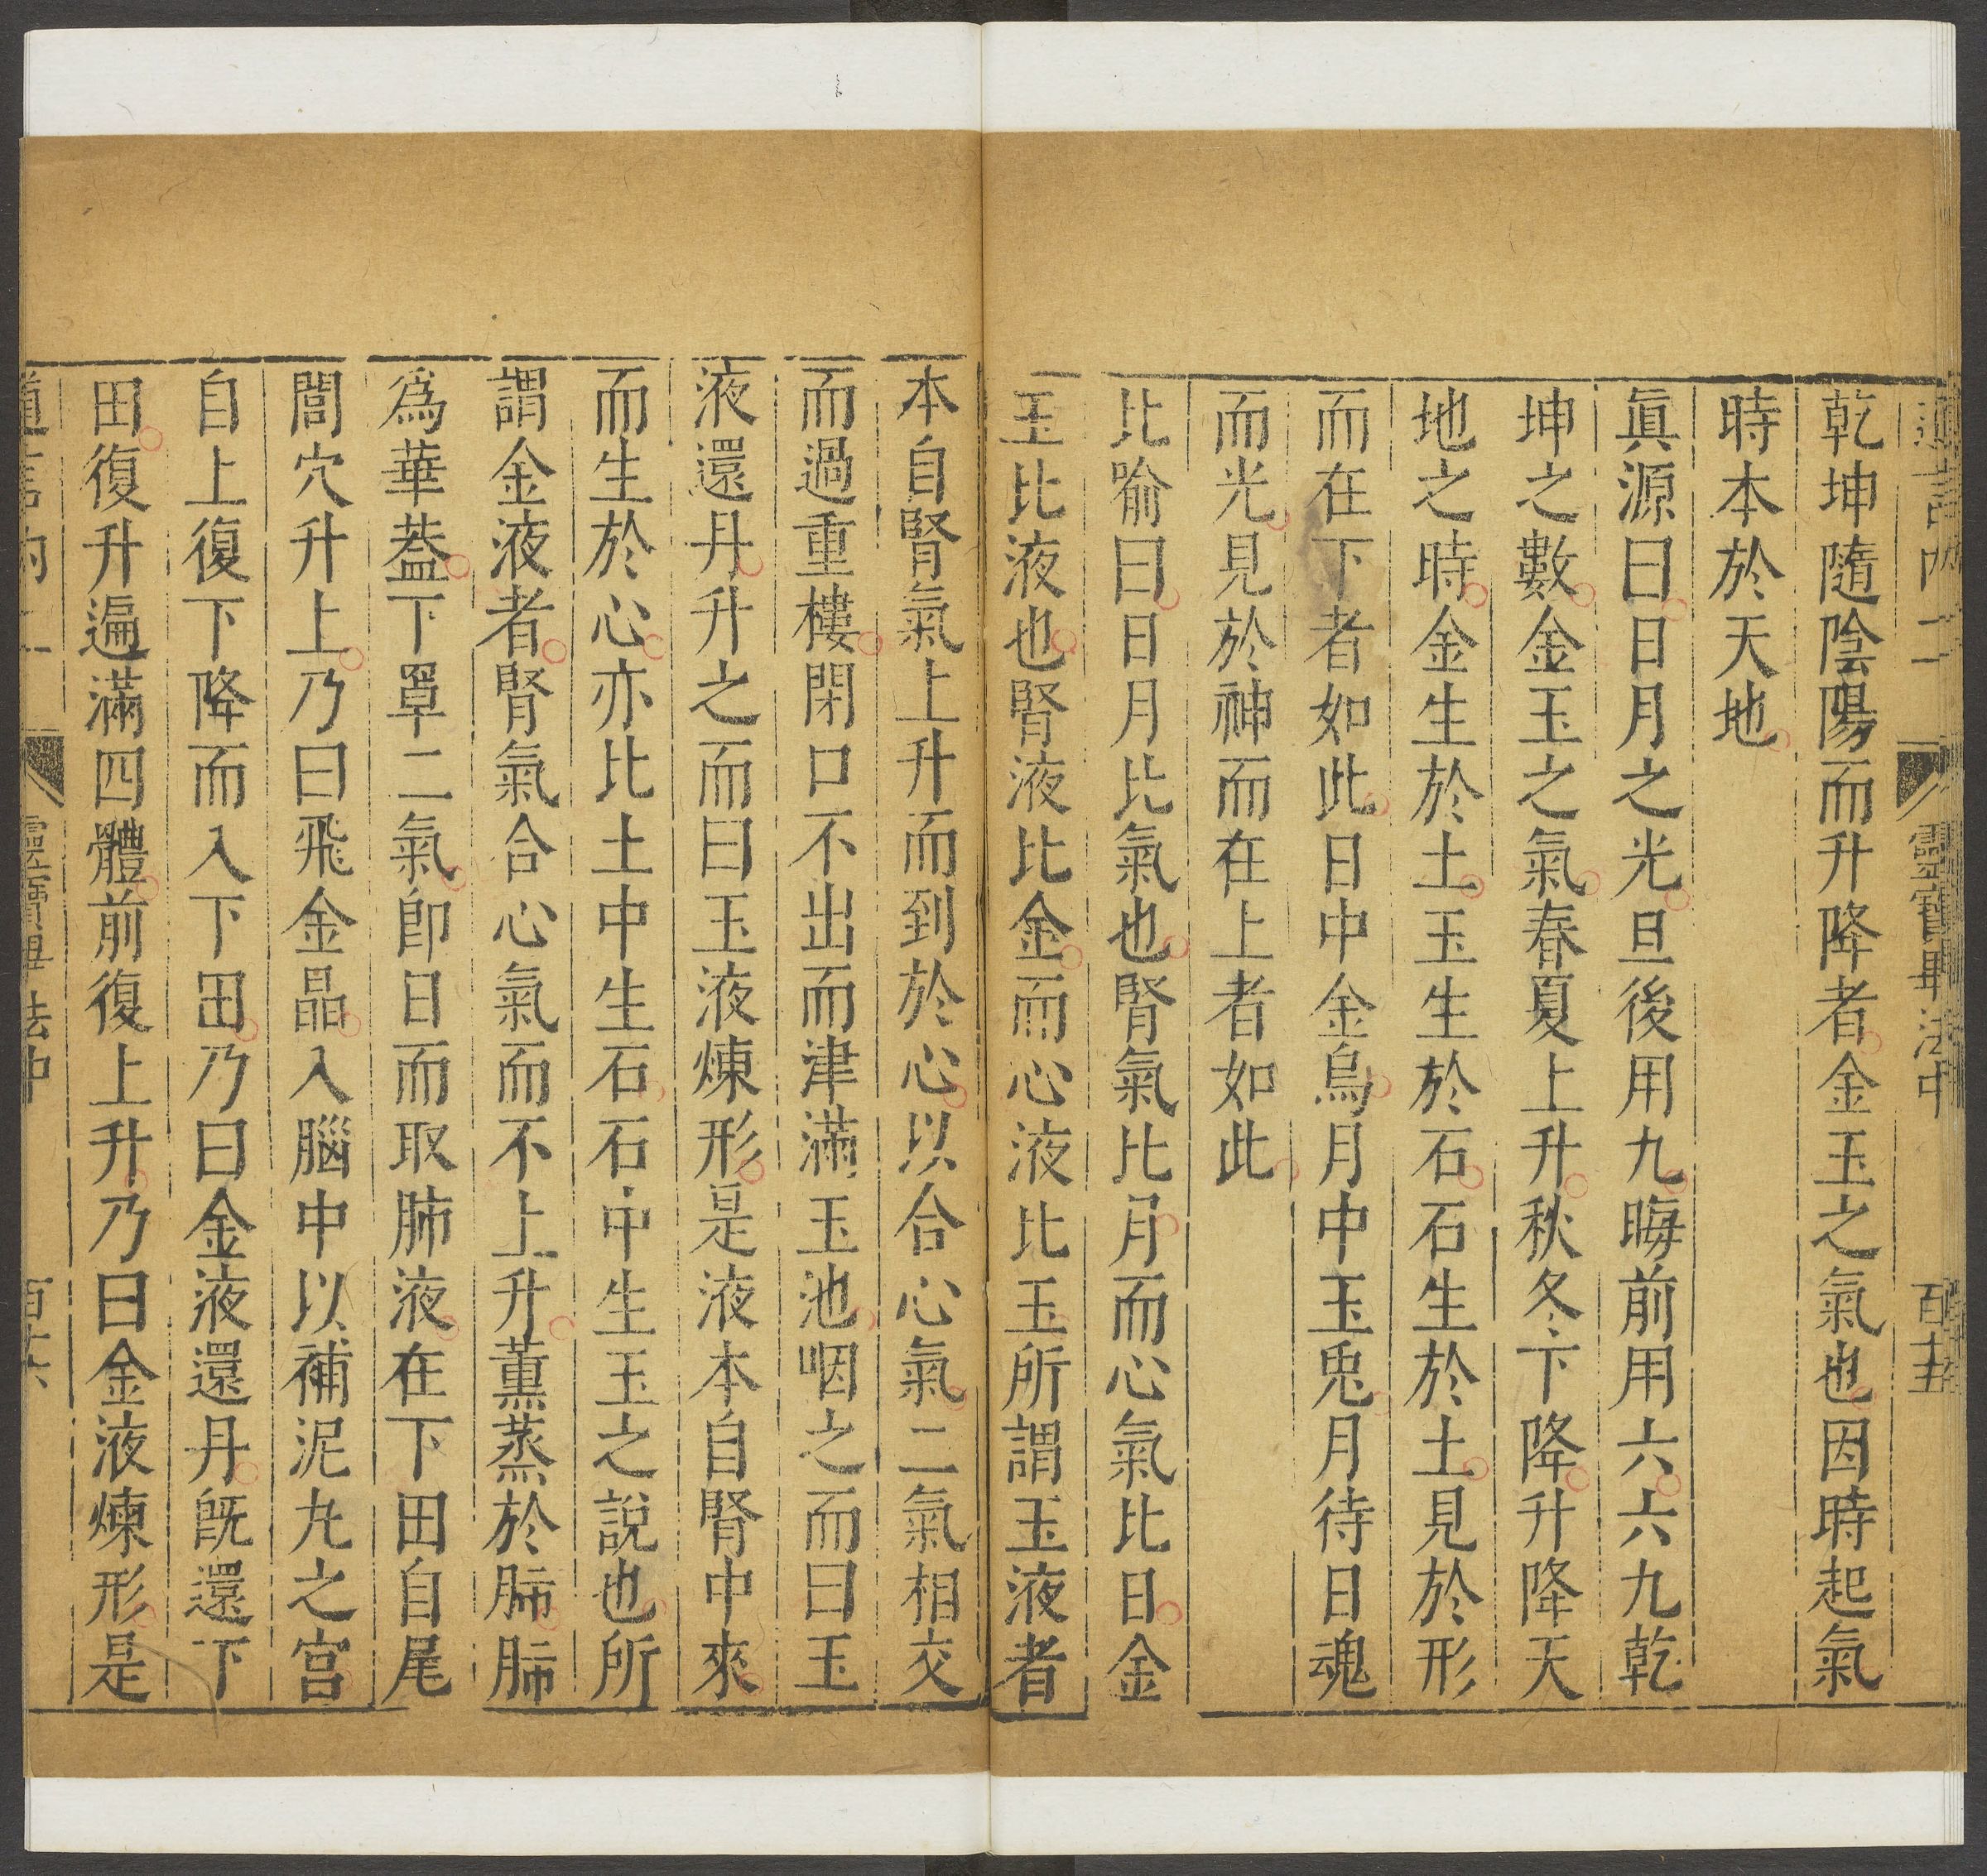 道言內二 靈寶畢法中 百十五
乾坤隨陰陽而升降者金玉之氣也因時起氣
時本於天地
眞源曰日月之光旦後用九晦前用六六九乾
坤之數金玉之氣春夏上升秋冬下降升降天
地之時金生於土玉生於石石生於土見於形
而在下者如此日中金烏月中玉兎月待日魂
而光見於神而在上者如此
比喻曰日月比氣也腎氣比月而心氣比日金
玉比液也腎液比金而心液比玉所謂玉液者
本自腎氣上升而到於心以合心氣二氣相交
而過重樓閉口不出而津滿玉池咽之而曰玉
液還丹升之而曰玉液煉形是液本自腎中來
而生於心亦比土中生石石中生玉之說也所
謂金液者腎氣合心氣而不上升薰蒸於肺肺
爲華蓋下罩二氣卽日而取肺液在下田自尾
閭穴升上乃曰飛金晶入腦中以補泥丸之宮
自上復下降而入下田乃曰金液還丹旣還下
田復升遍滿四體前復上升乃曰金液煉形是
道言內二 靈寶畢法中 百十六